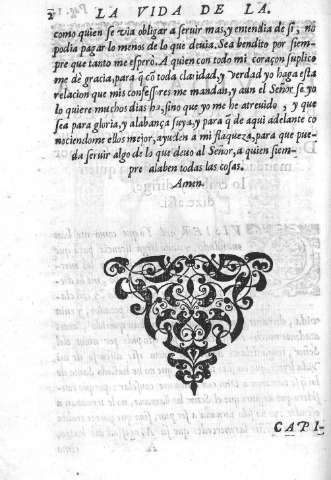 2 LA VIDA DE LA.
como quien se via obligar a seruir mas, y entendia de si, no
podia pagar lo menos de lo que deuia. Sea bendito por siem-
pre que tanto me esperò. A quien con todo mi coraçon suplico
me dè gracia, para q̃ cõ toda claridad, y verdad yo haga esta
relacion que mis confessores me mandan, y aun el Señor se yo
lo quiere muchos dias ha, sino que yo me he atreuido, y que
sea para gloria, y alabança suya, y para q̃ de aqui adelante co
nociendome ellos mejor, ayuden a mi flaqueza, para que pue-
da seruir algo de lo que deuo al Señor, a quien siem-
pre alaben todas las cosas.
Amen.
CAPI-